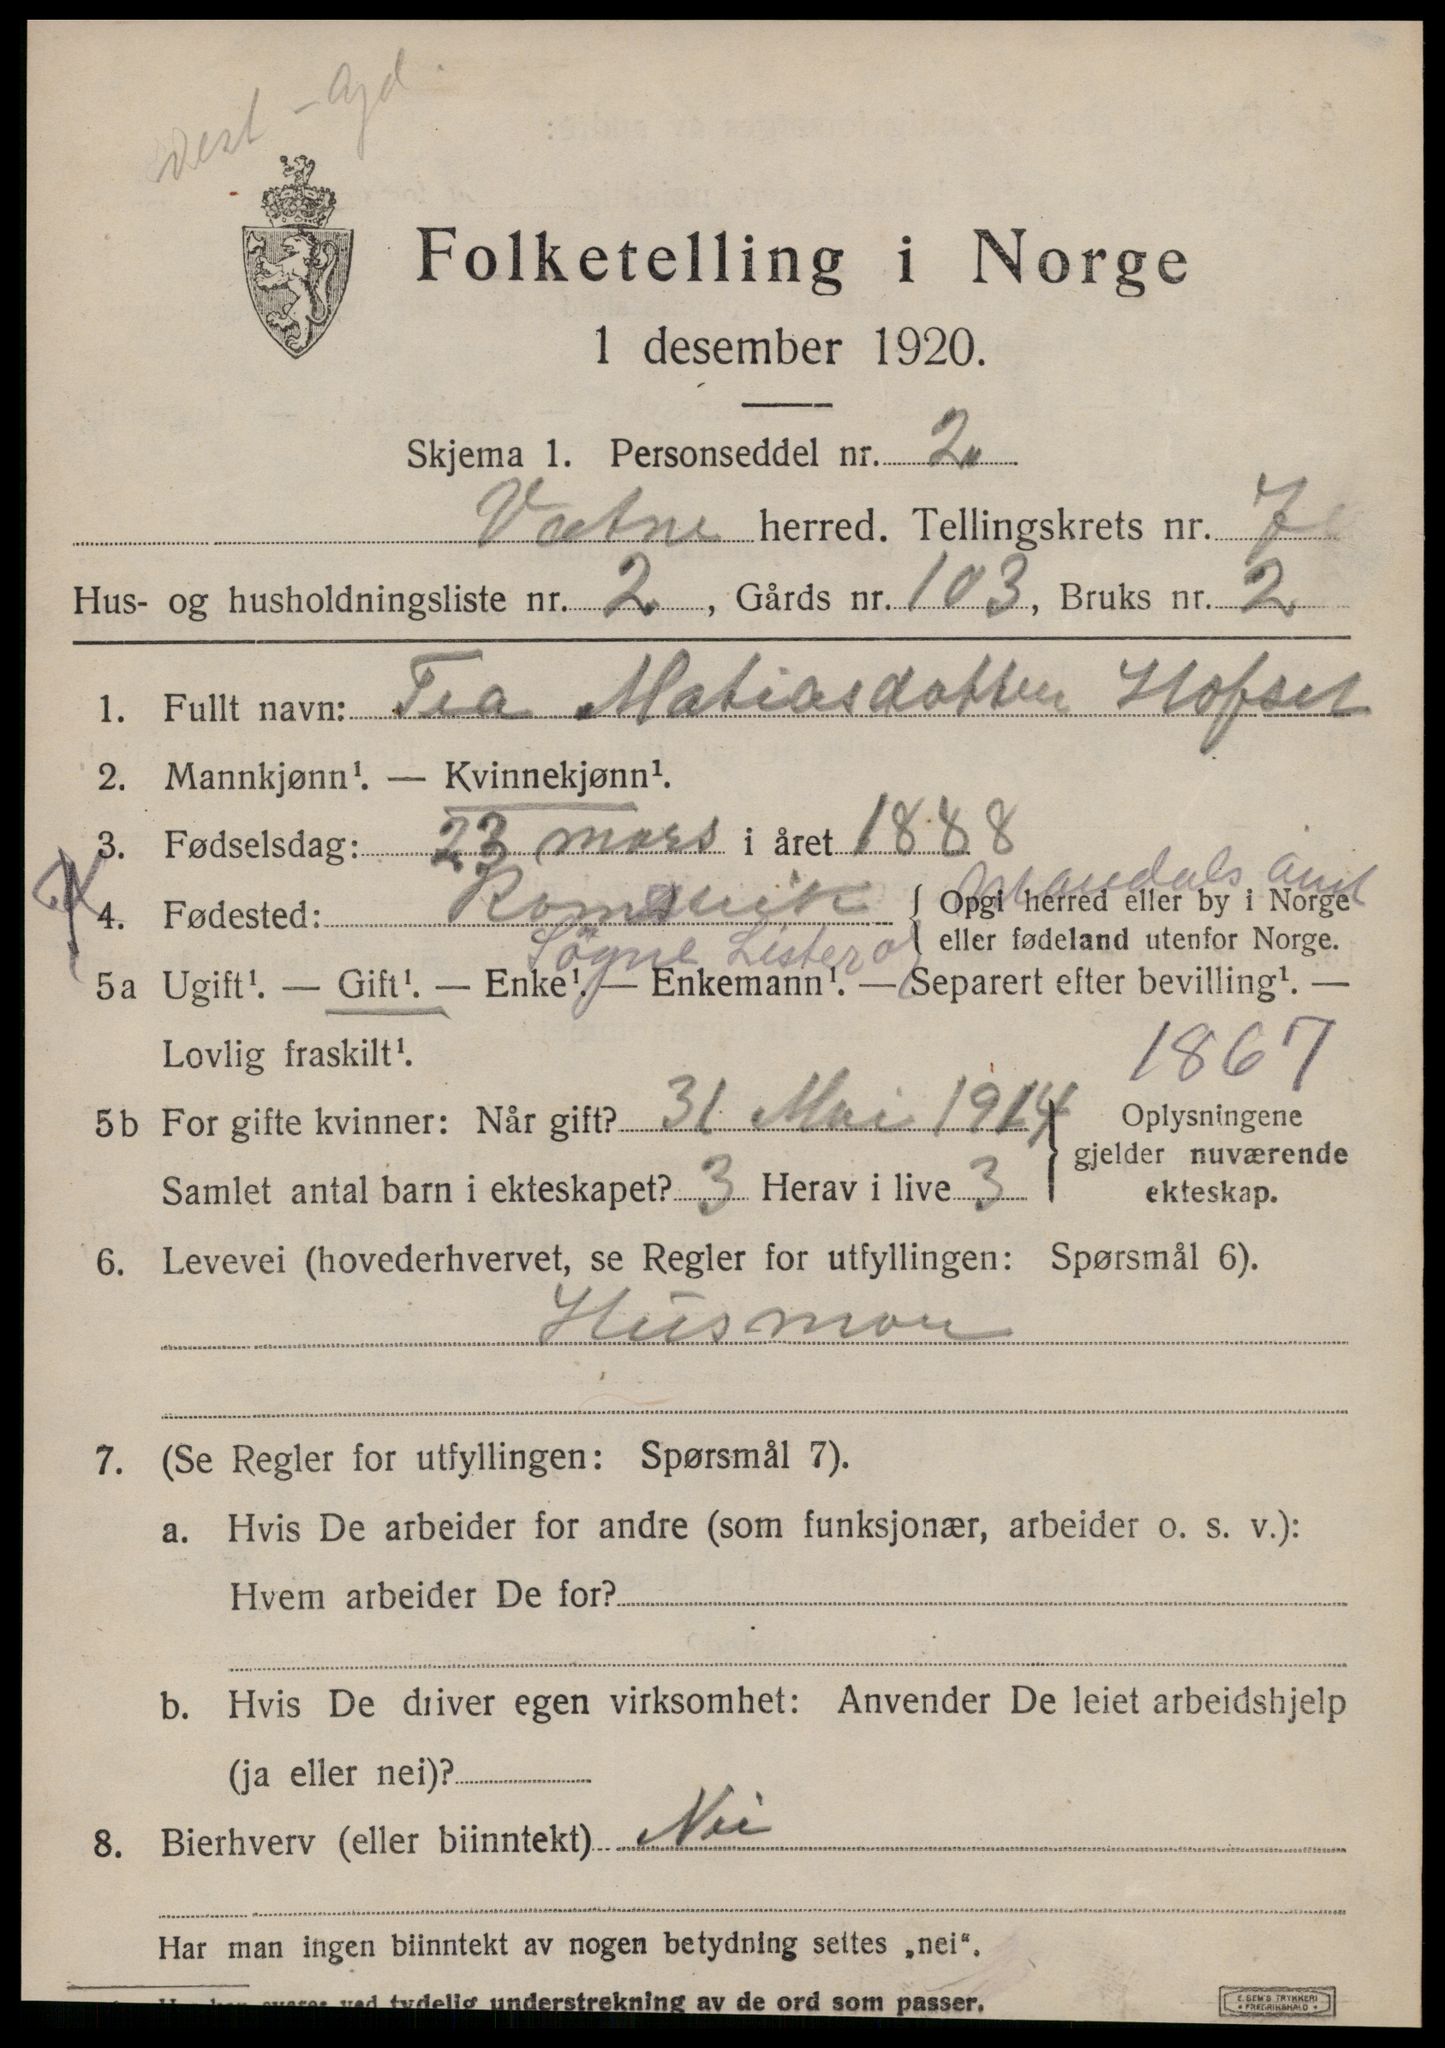 Vest-Agd.
Folketelling i Norge
1 desember 1920.
Skjema 1. Personseddel nr. 2
Vatne herred. Tellingskrets nr. 7
Hus- og husholdningsliste nr. 2, Gårds nr. 103, Bruks nr. 2
1. Fullt navn: Tea Matiasdatter Hofset
2. Mannkjønn¹. — Kvinnekjønn¹.
3. Fødselsdag: 23 mars i året 1888
Mandals amt
4. Fødested: { Opgi herred eller by i Norge
eller fødeland utenfor Norge.
Søgne Lister o
5a Ugift¹. — Gift¹. — Enke¹. — Enkemann¹. — Separert efter bevilling¹. —
Lovlig fraskilt¹.
1867
5b For gifte kvinner: Når gift? 31 Mai 1914 } Oplysningene
gjelder nuværende
Samlet antal barn i ekteskapet? 3 Herav i live 3 ekteskap.
6. Levevei (hovederhvervet, se Regler for utfyllingen: Spørsmål 6).
Husmor
7. (Se Regler for utfyllingen: Spørsmål 7).
a. Hvis De arbeider for andre (som funksjonær, arbeider o. s. v.):
Hvem arbeider De for?
b. Hvis De driver egen virksomhet: Anvender De leiet arbeidshjelp
(ja eller nei)?
8. Bierhverv (eller biinntekt) Nei
Har man ingen biinntekt av nogen betydning settes „nei“.
svares ved tydelig understrekning av de ord som passer.
E. SEM'S TRYKKERI
FREDRIKSHALD